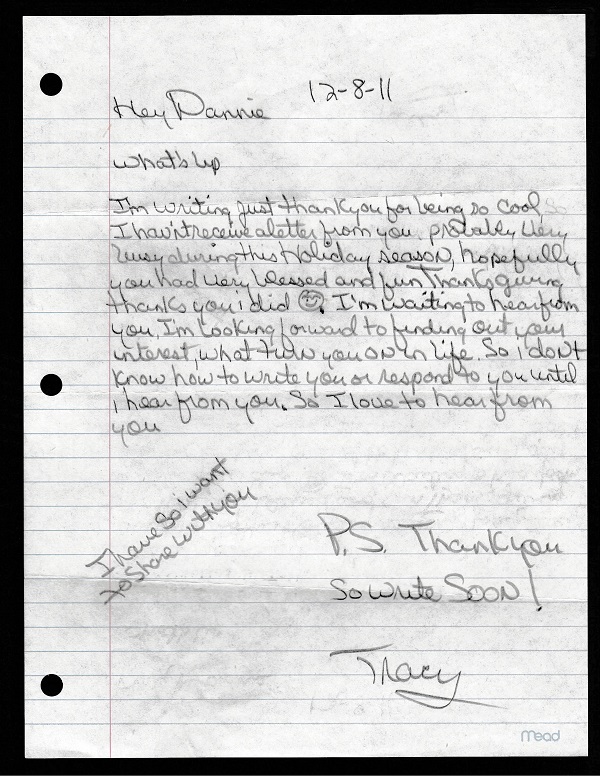 12-8-11
Hey Dannie
What's Up
I'm writing just thankyou for being so cool, so
I hav'nt receive a letter from you, probably very
busy during this Holiday season, hopefully
you had very blessed and fun Thanksgiving
thanks you i did ☺. I'm waiting to hear from
you, I'm looking forward to finding out your
interest, what turn you on in life. So i don't
know how to write you or respond to you until
i hear from you. So I love to hear from
you
I have so i want
to share with you
P.S. Thankyou
So write SOON!
Tracy
Mead